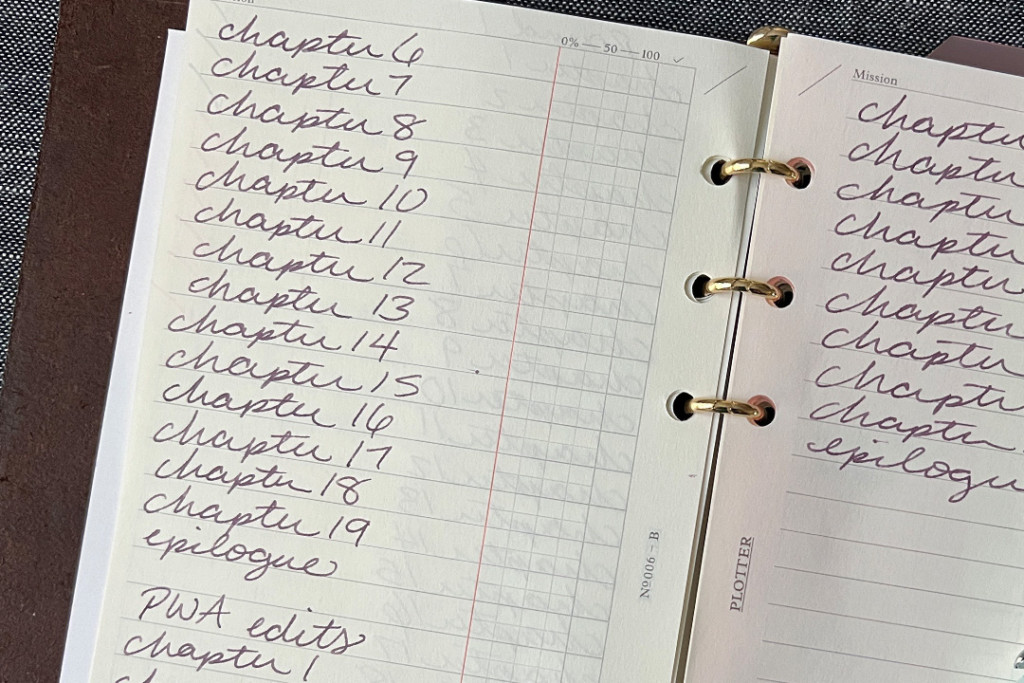 0% — 50 — 100 ✓
chapter 6
chapter 7
chapter 8
chapter 9
chapter 10
chapter 11
chapter 12
chapter 13
chapter 14
chapter 15
chapter 16
chapter 17
chapter 18
chapter 19
epilogue
PWA edits
chapter 1
Nº006 - B
Mission
chapter
chapter
chapter
chapter
chapter
chapter
chapter
chapter
chapter
epilogue
PLOTTER